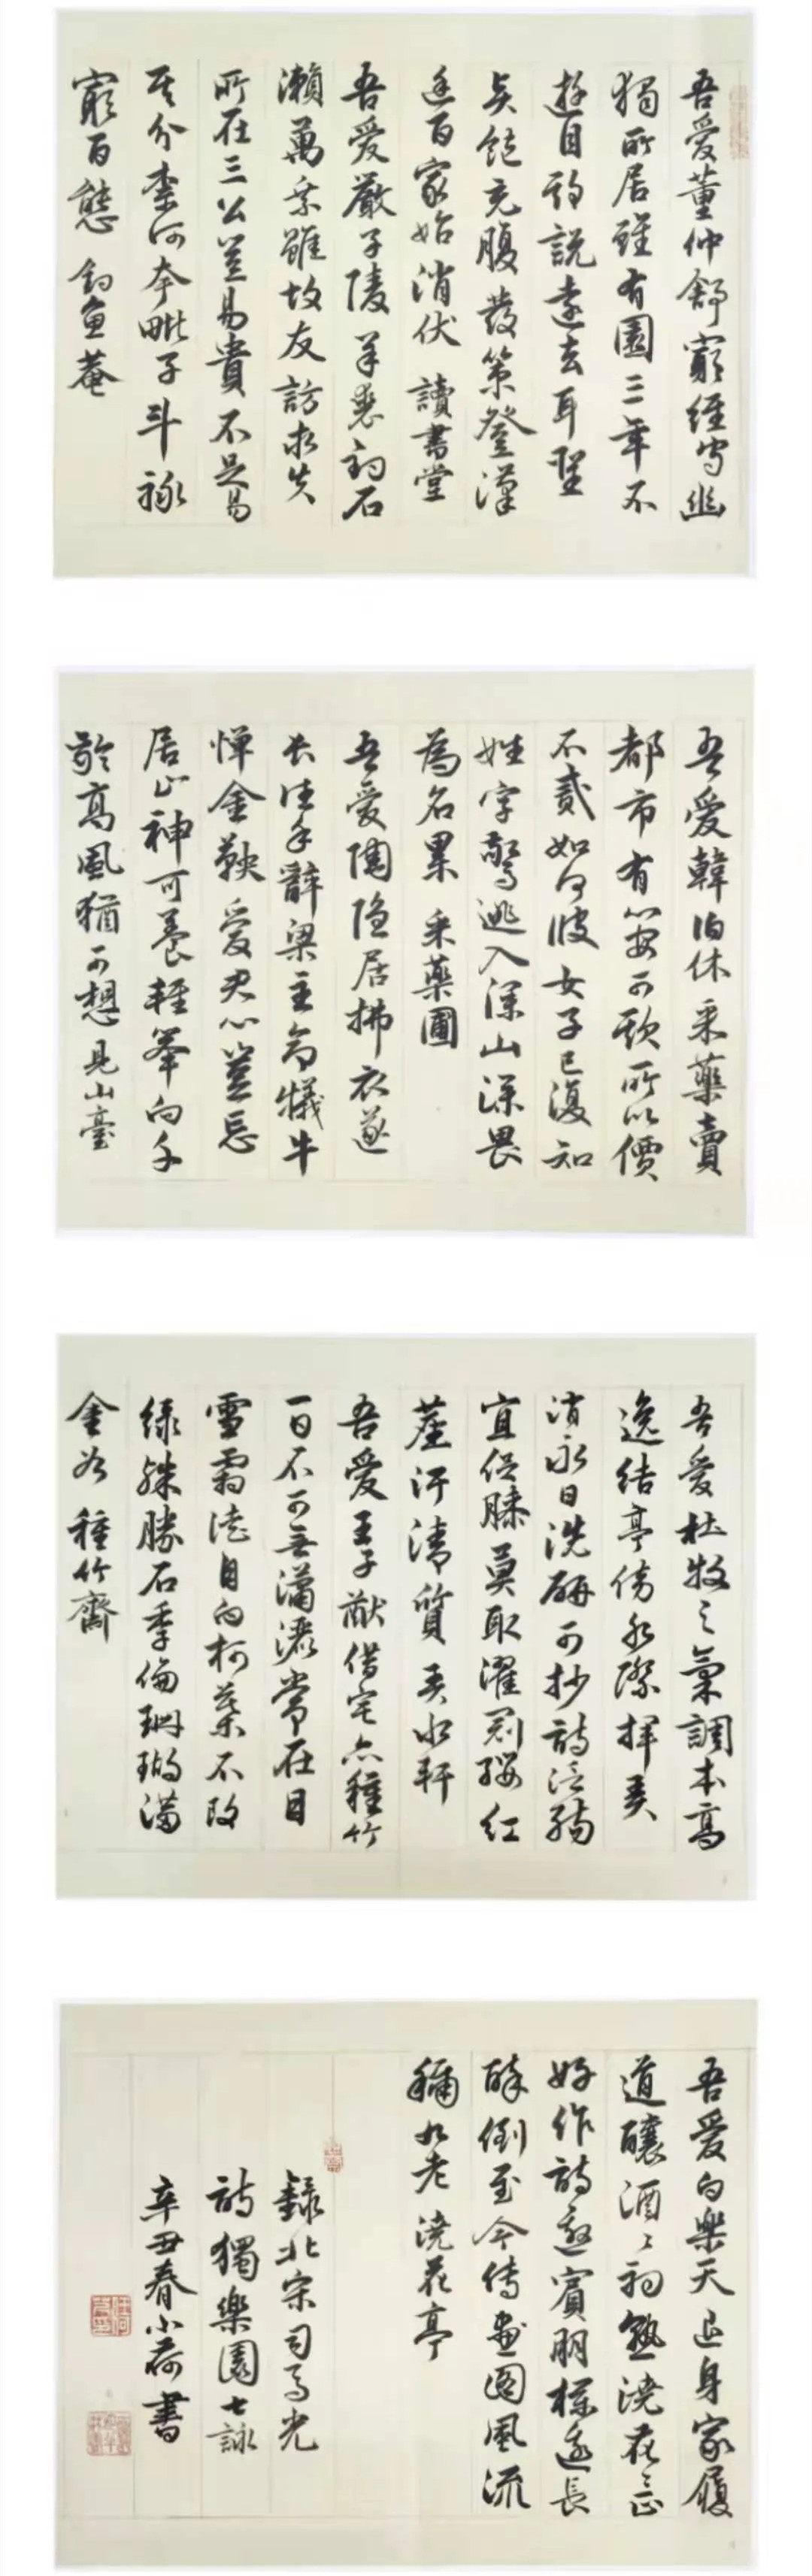 吾愛董仲舒窮經守幽
獨所居雖有園三年不
遊目邪說遠去耳聖
言飽充腹發策登漢
廷百家始消伏 讀書堂
吾愛嚴子陵羊裘釣石
瀨萬乘雖故友訪求失
所在三公豈易貴不足易
其介奈何夸毗子斗祿
窮百態 釣魚菴
吾愛韓伯休采藥賣
都市有心安可欺所以價
不貳如何彼女子已復知
姓字驚逃入深山深畏
為名累 采藥圃
吾愛陶隐居拂衣遂
長往手辭梁主命犧牛
憚金鞅愛君心豈忘
居山神可養輕舉向千
齡高風猶可想 見山臺
吾愛杜牧之氣調本高
逸結亭侍水際揮弄
消永日洗硯可抄詩泛觴
宜促膝莫取濯冠纓紅
塵汙清質 弄水軒
吾愛王子猷借宅亦種竹
一日不可無瀟灑常在目
雪霜徒自白柯葉不改
綠殊勝石季倫珊瑚滿
金谷 種竹齋
吾愛白樂天退身家履
道釀酒々初熟澆花々正
好作詩邀賓朋欄邊長
醉倒至今傳畫圖風流
稱九老 澆花亭
錄北宋司馬光
詩獨樂園七詠
辛丑春小荷書